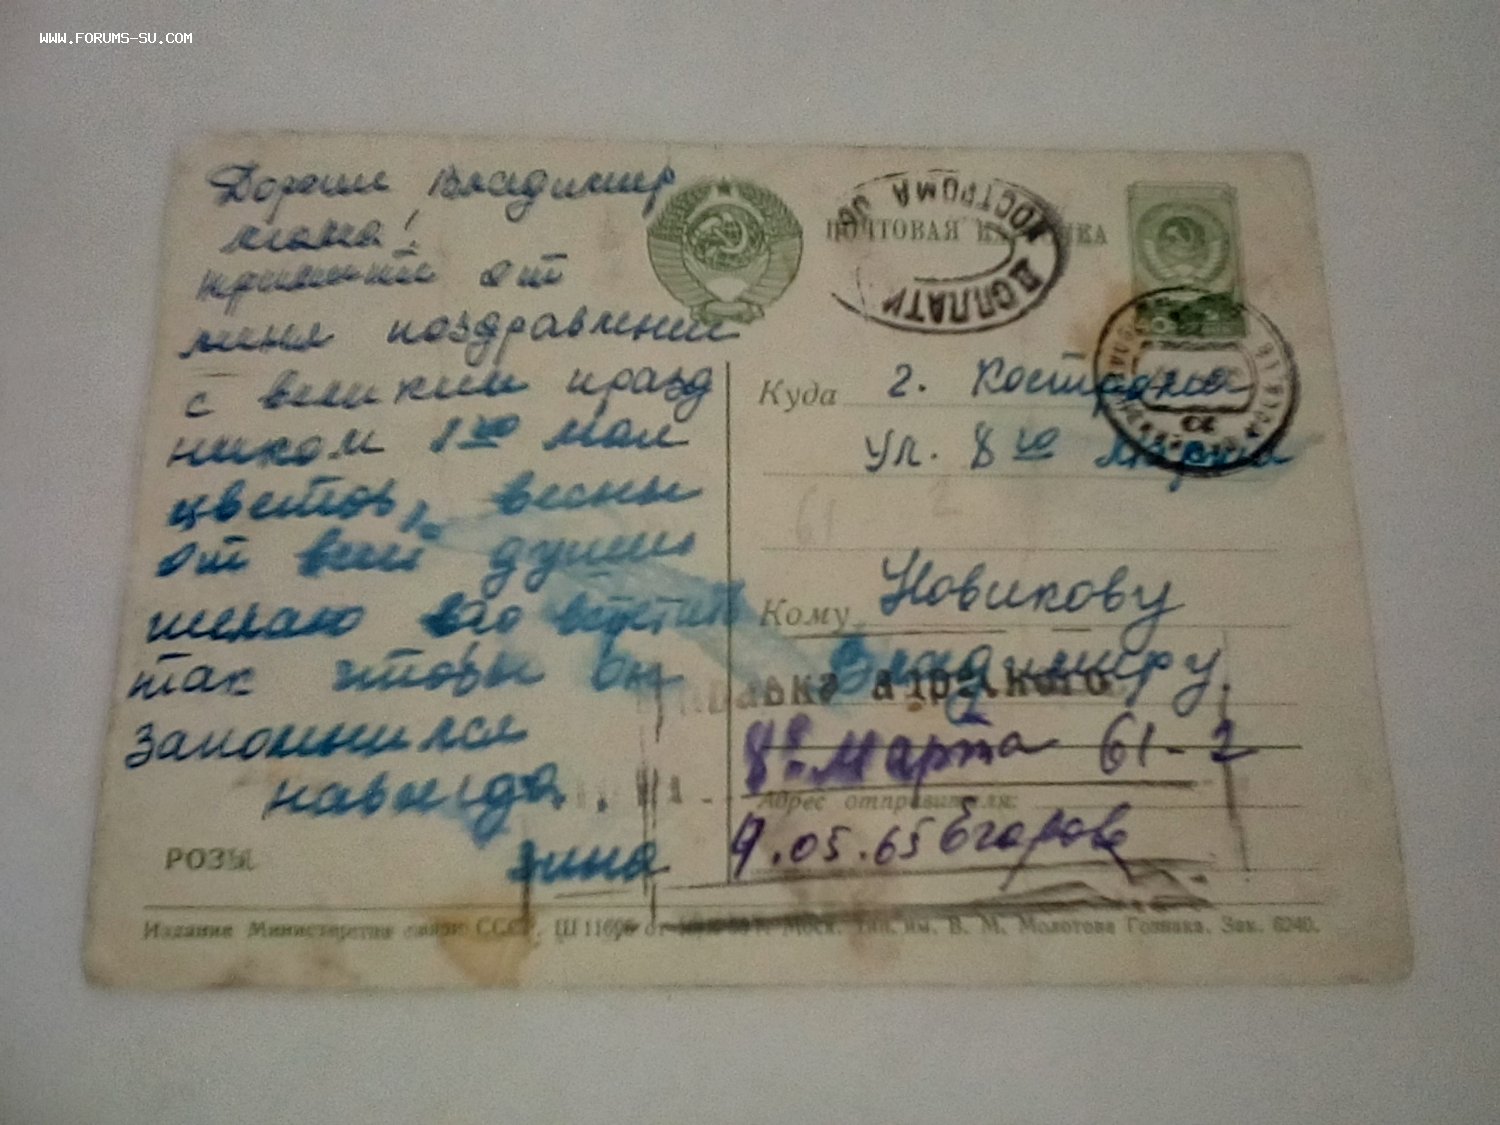 WWW.FORUMS-SU.COM
Владимир
от
меня поздравление
с великим празд
ником 1го мая
цветов, весны
от всей души
желаю вас встетить
так чтобы он
запомнился
навсегда.
Зина
РОЗЫ
ПОЧТОВАЯ
КОСТРОМА
ДОПЛАТИТЬ
Куда г. Кострома
ул. 8го Марта
61 2
Кому Новикову
Владимиру
8го Марта 61-2
Адрес отправителя:
05.65 Егорова
Издание Министерства связи СССР. Ш 11606 от Моск. тип. им. В. М. Молотова Гознака. Зак. 6240.